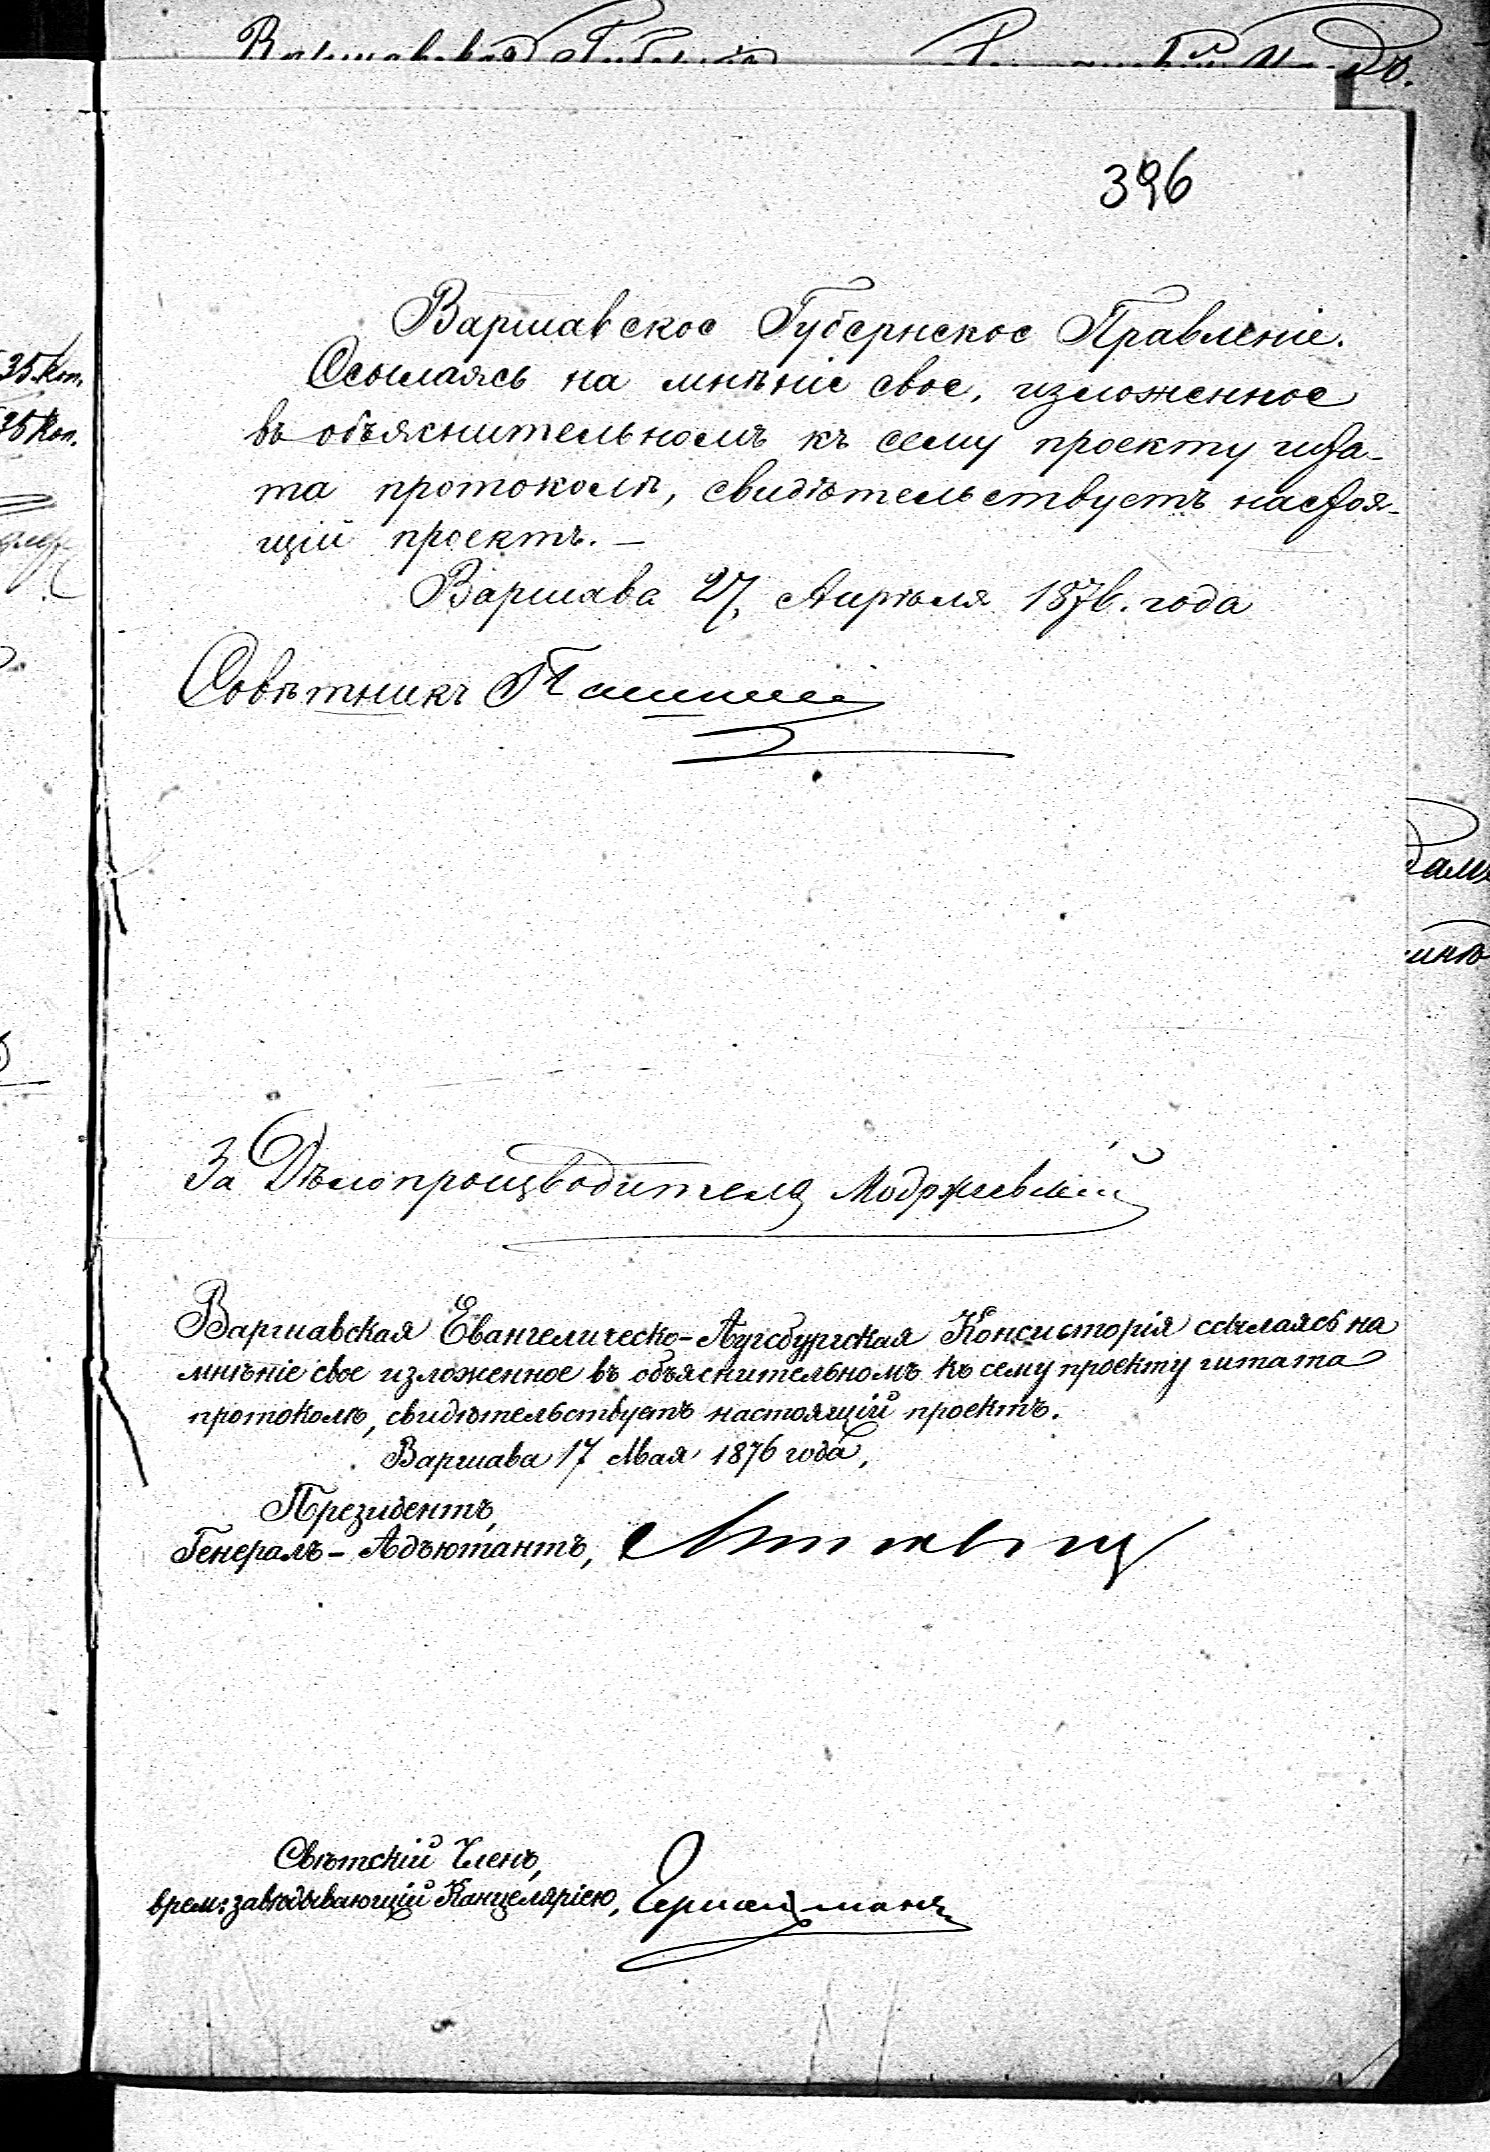 396
35 Коп.
35 Коп.
Варшавское Губернское Правленіе.
Ссылаясь на мнѣніе свое, изложенное
въ объяснительномъ къ сему проекту шта-
та протоколѣ, свидѣтельствуетъ настоя-
щій проектъ. —
Варшава 27 Апрѣля 1876. года
Совѣтникъ
За Дѣлопроизводителя Модржевскій
Варшавская Евангелическо-Аугсбургская Консисторія ссылаясь на
мнѣніе свое изложенное въ объяснительномъ къ сему проекту штата
протоколѣ, свидѣтельствуетъ настоящій проектъ.
Варшава 17 Мая 1876 года,
Президентъ,
Генералъ-Адъютантъ, Минквиц
Свѣтскій Членъ,
врем: завѣдывающій Канцеляріею,